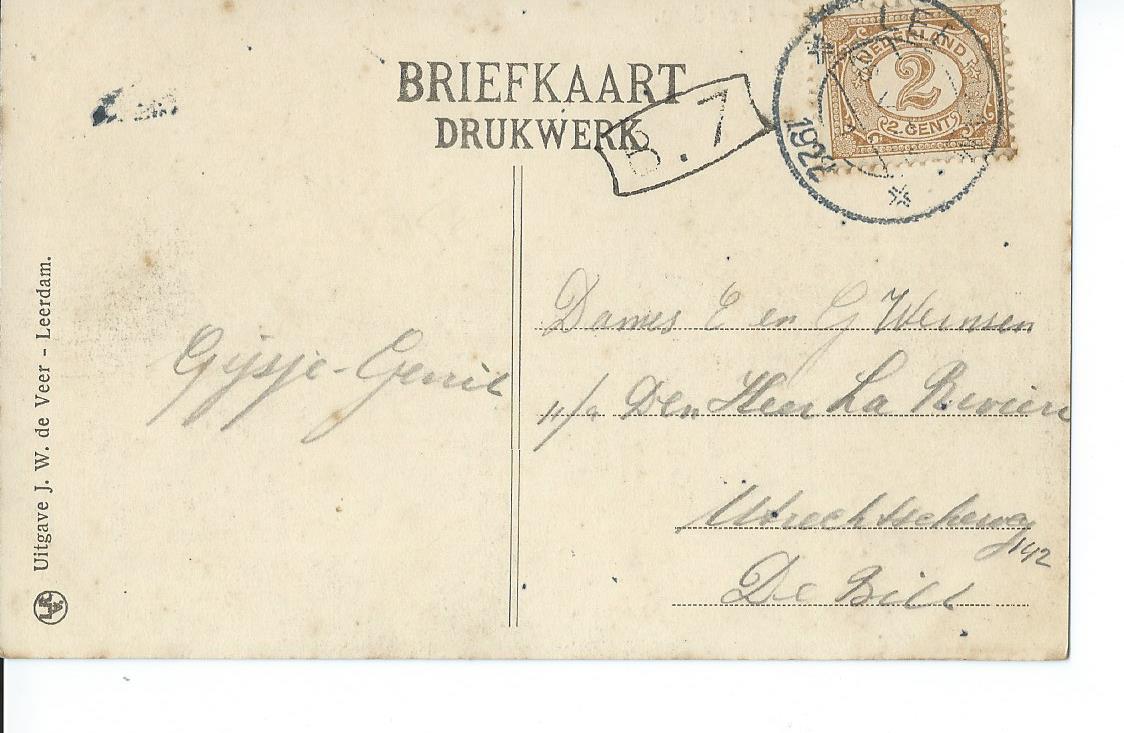 BRIEFKAART
DRUKWERK
B. 7
NEDERLAND
2
2. CENT
1922
Gijsje - Gerrit
Dames E en G Wernsen
p/a Den Heer La Riviere
Utrechtscheweg
142
De Bilt
Uitgave J. W. de Veer - Leerdam.